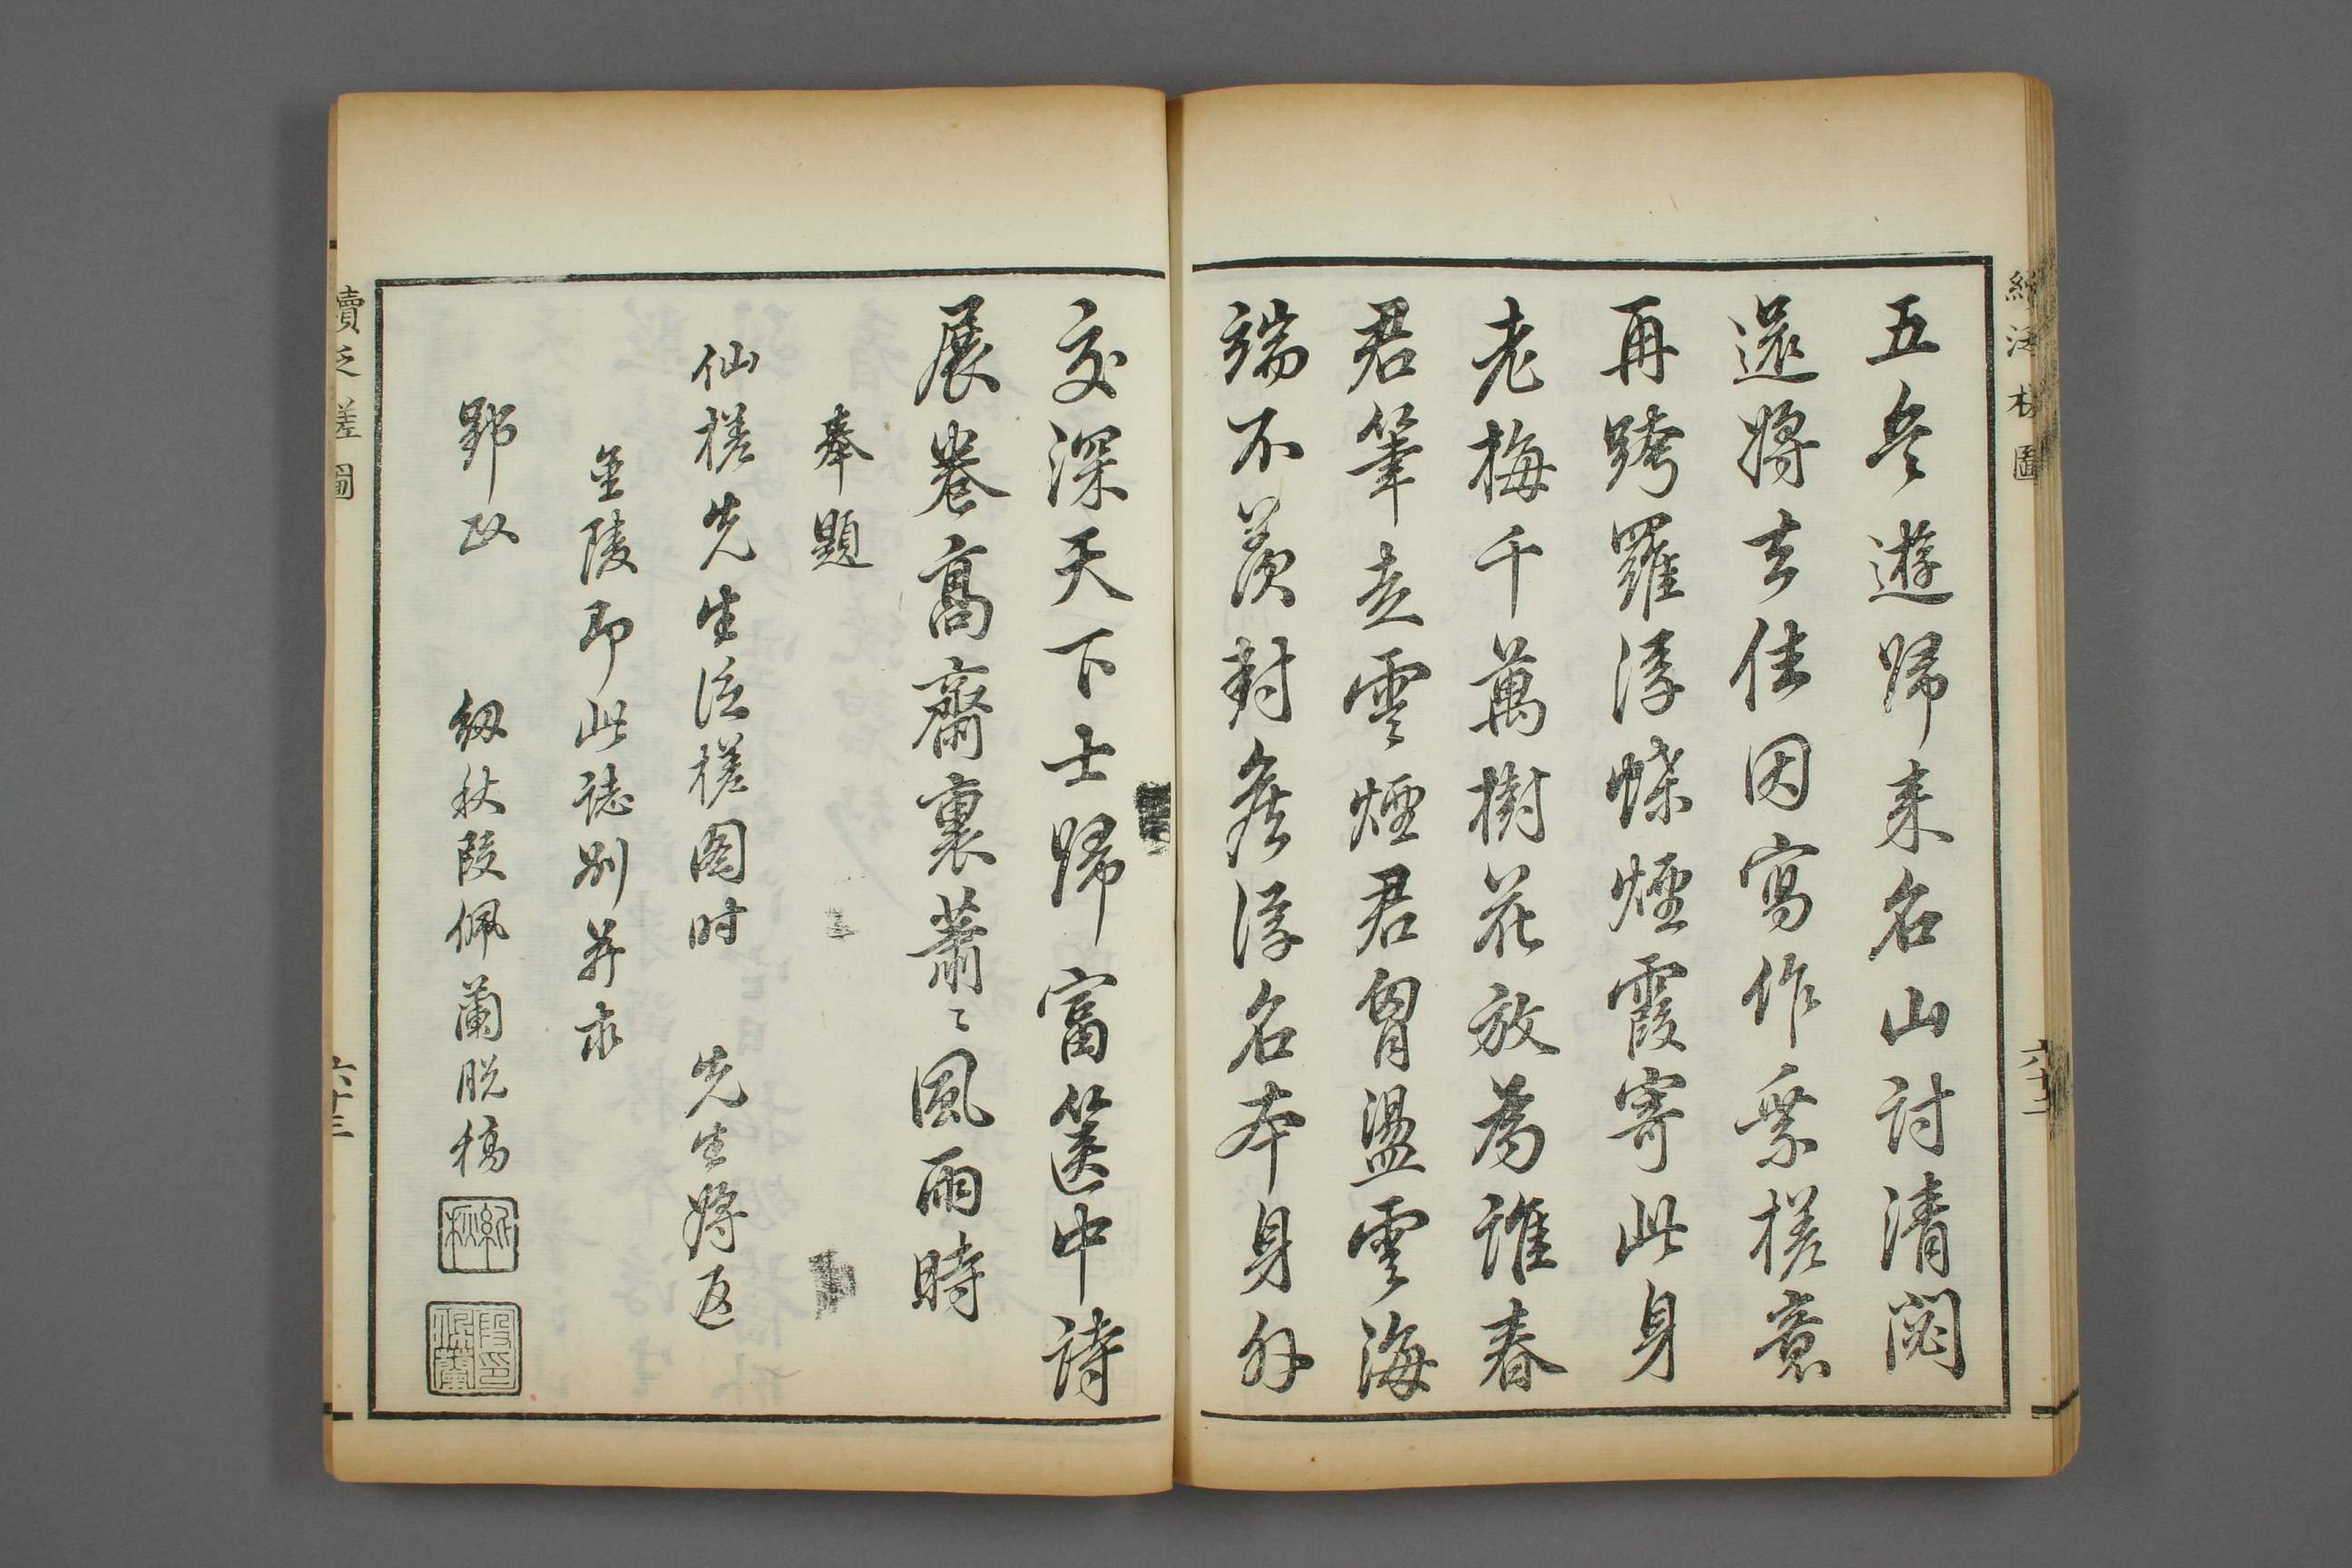 續泛槎圖
六十二
五兵遊歸来名山討清閟
還將去住因寫作乘槎意
再跨羅浮蝶煙霞寄此身
老梅千萬樹花放為誰春
君筆走雲煙君胷盪雲海
端不羨封矦浮名本身外
交深天下士歸富篋中詩
展卷高齋裏蕭〻風雨時
奉題
仙槎先生泛槎图时 先生將返
金陵即此誌別并求
郢政 紉秋段佩蘭脫稿
紉秋
段印佩蘭
續泛槎圖
六十三